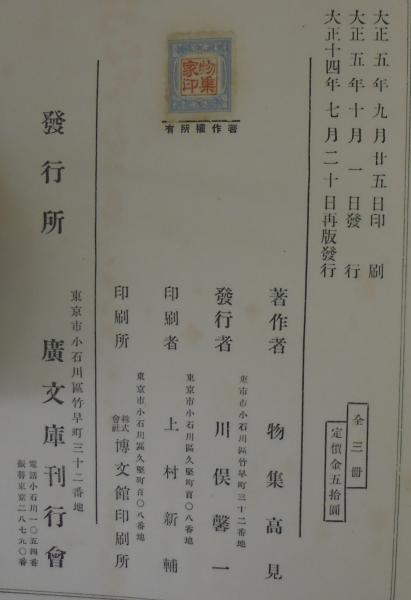 大正五年九月廿五日印刷
大正五年十月一日發行
大正十四年七月二十日再版發行
全三冊
定價金五拾圓
物集家印
有所權作著
著作者 物集高見
東京市小石川區竹早町三十二番地
發行者 川俣馨一
東京市小石川區久堅町百〇八番地
印刷者 上村新輔
東京市小石川區久堅町百〇八番地
印刷所 株式會社 博文館印刷所
東京市小石川區竹早町三十二番地
發行所 廣文庫刊行會
電話小石川一〇五四番
振替東京二八七九〇番